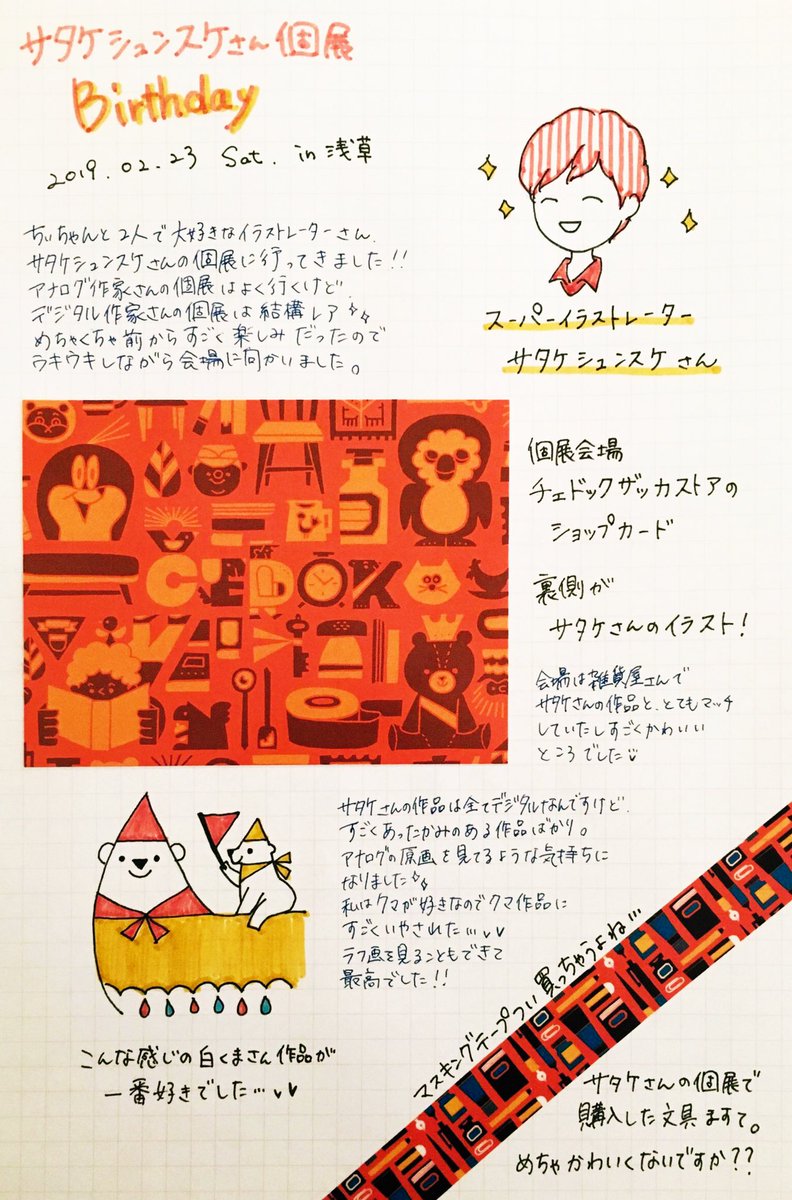 サタケシュンスケさん個展
Birthday
2019.02.23 Sat. in 浅草
ちぃちゃんと2人で大好きなイラストレーターさん、
サタケシュンスケさんの個展に行ってきました!!
アナログ作家さんの個展はよく行くけど、
デジタル作家さんの個展は結構レア
めちゃくちゃ前からすごく楽しみだったので
ウキウキしながら会場に向かいました。
スーパーイラストレーター
サタケシュンスケさん
CEDOK
個展会場
チェドックザッカストアの
ショップカード
裏側が
サタケさんのイラスト!
会場は雑貨屋さんで
サタケさんの作品と、とてもマッチ
していたしすごくかわいい
ところでした
サタケさんの作品は全てデジタルなんですけど、
すごくあったかみのある作品ばかり。
アナログの原画を見てるような気持ちに
なりました
私はクマが好きなのでクマ作品に
すごくいやされた…
ラフ画を見ることもできて
最高でした!!
こんな感じの白くまさん作品が
一番好きでした…
マスキングテープつい買っちゃうよね…
サタケさんの個展で
購入した文具ますて。
めちゃかわいくないですか??